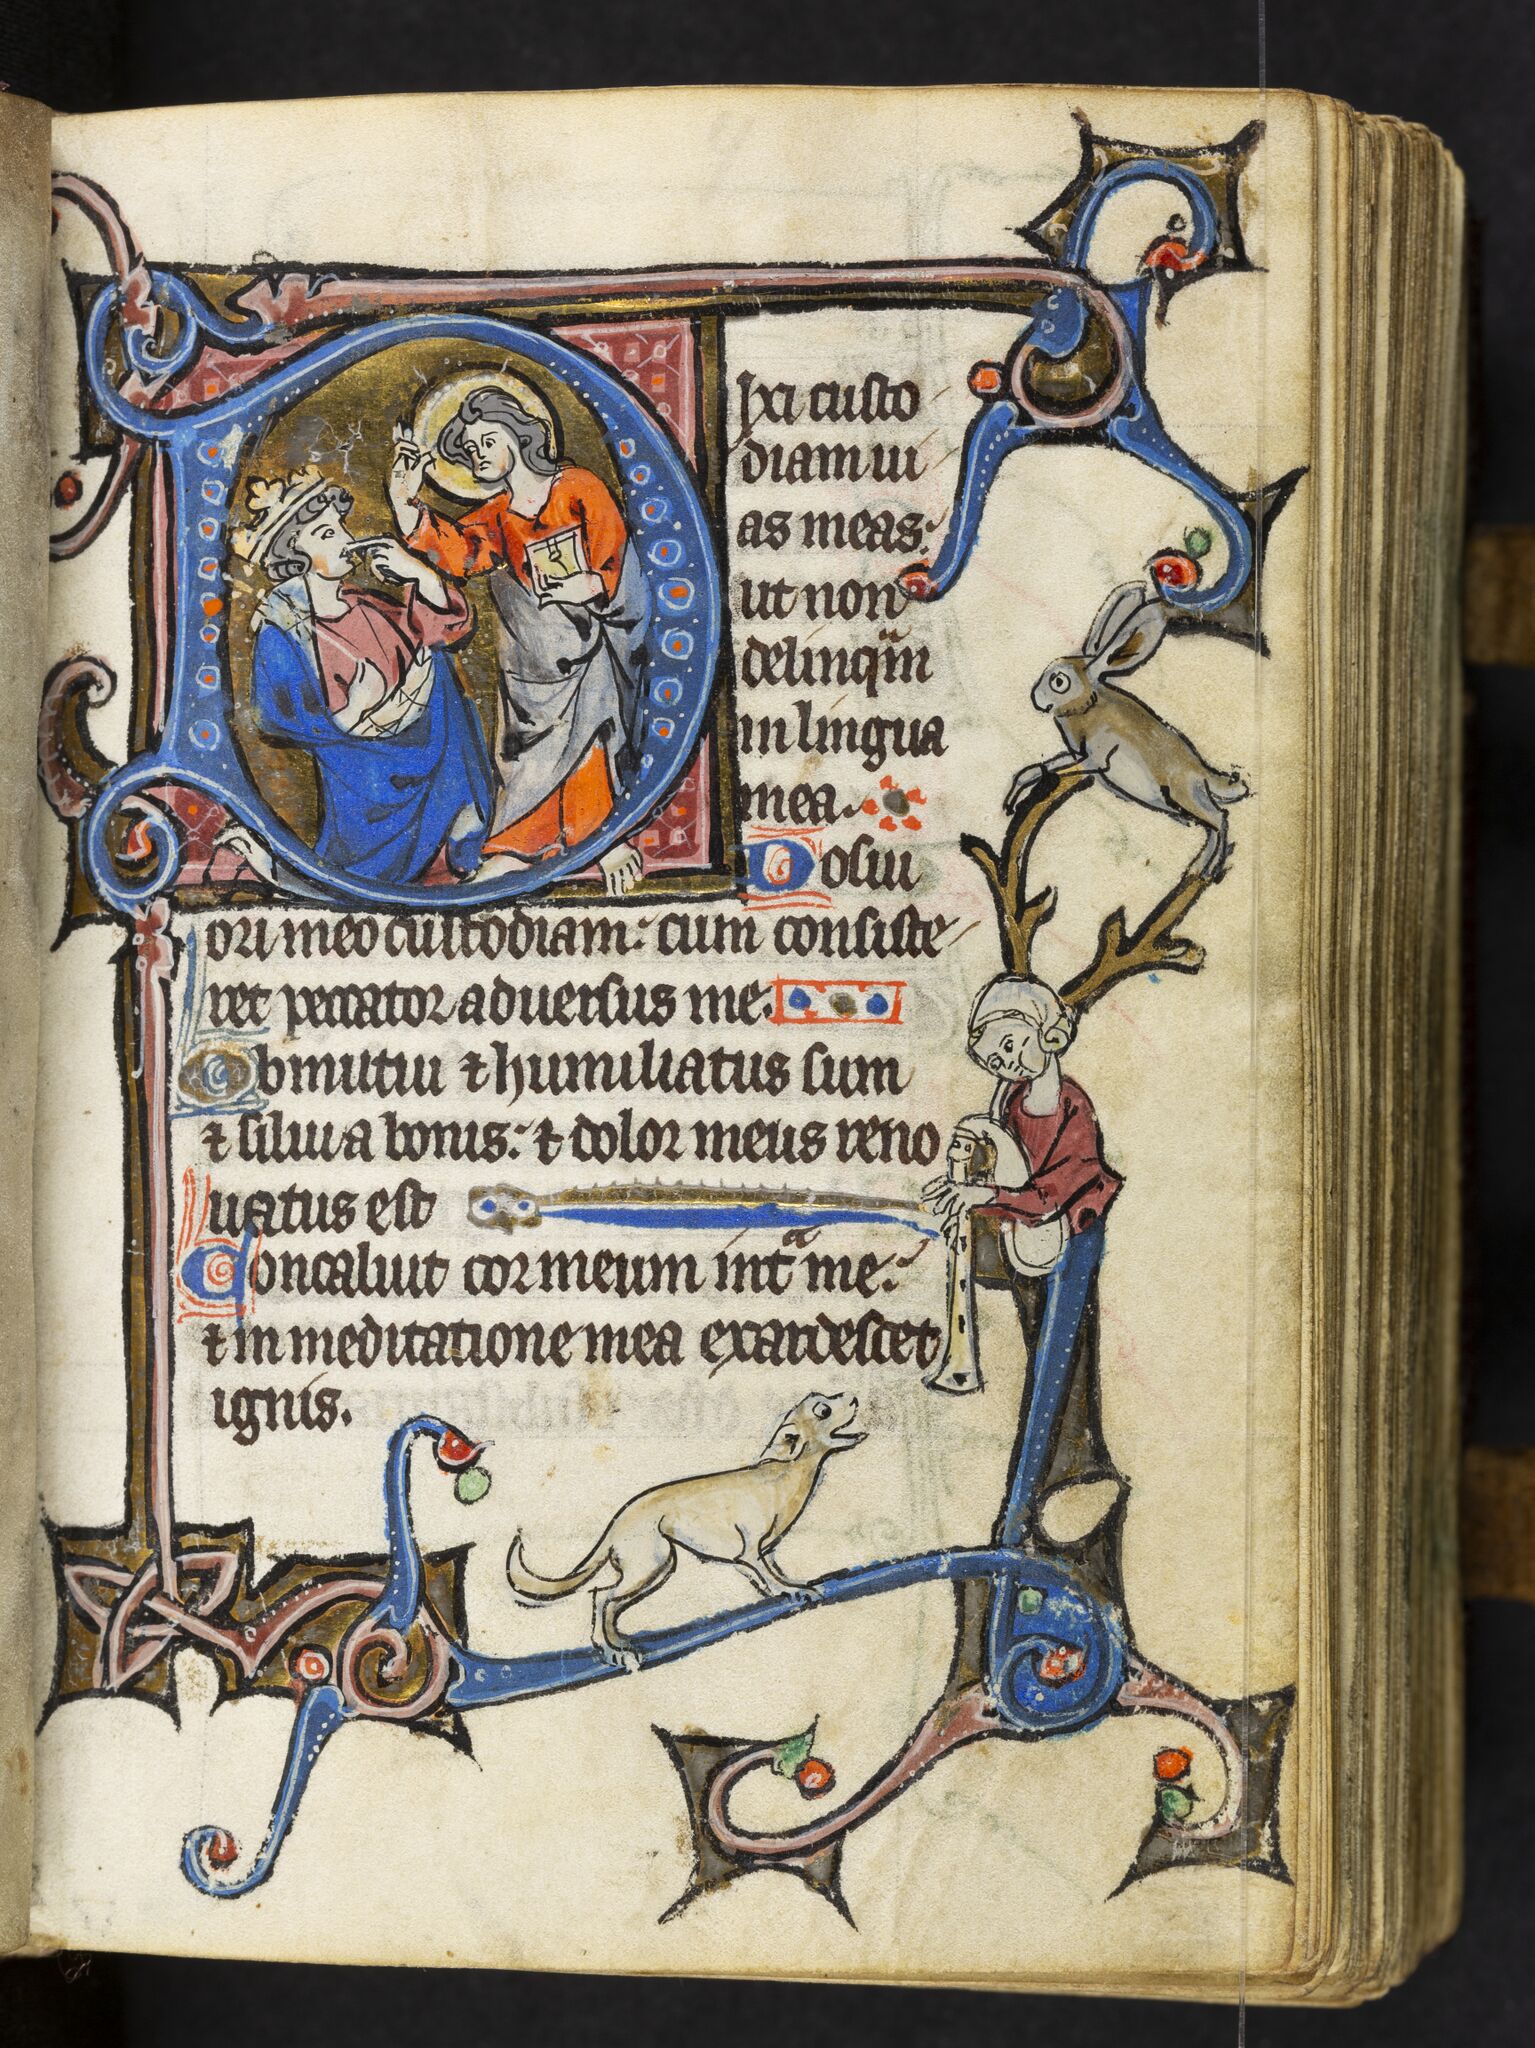 Dixi custo
diam ui
as meas:
ut non
delinqͣm
in lingua
mea.
Posui
ori meo custodiam: cum consiste
ret peccator aduersus me.
Obmutui ⁊ humiliatus sum
⁊ silui a bonis: ⁊ dolor meus reno
uatus est
Concaluit cor meum intͣ me:
⁊ in meditatione mea exardescet
ignis.